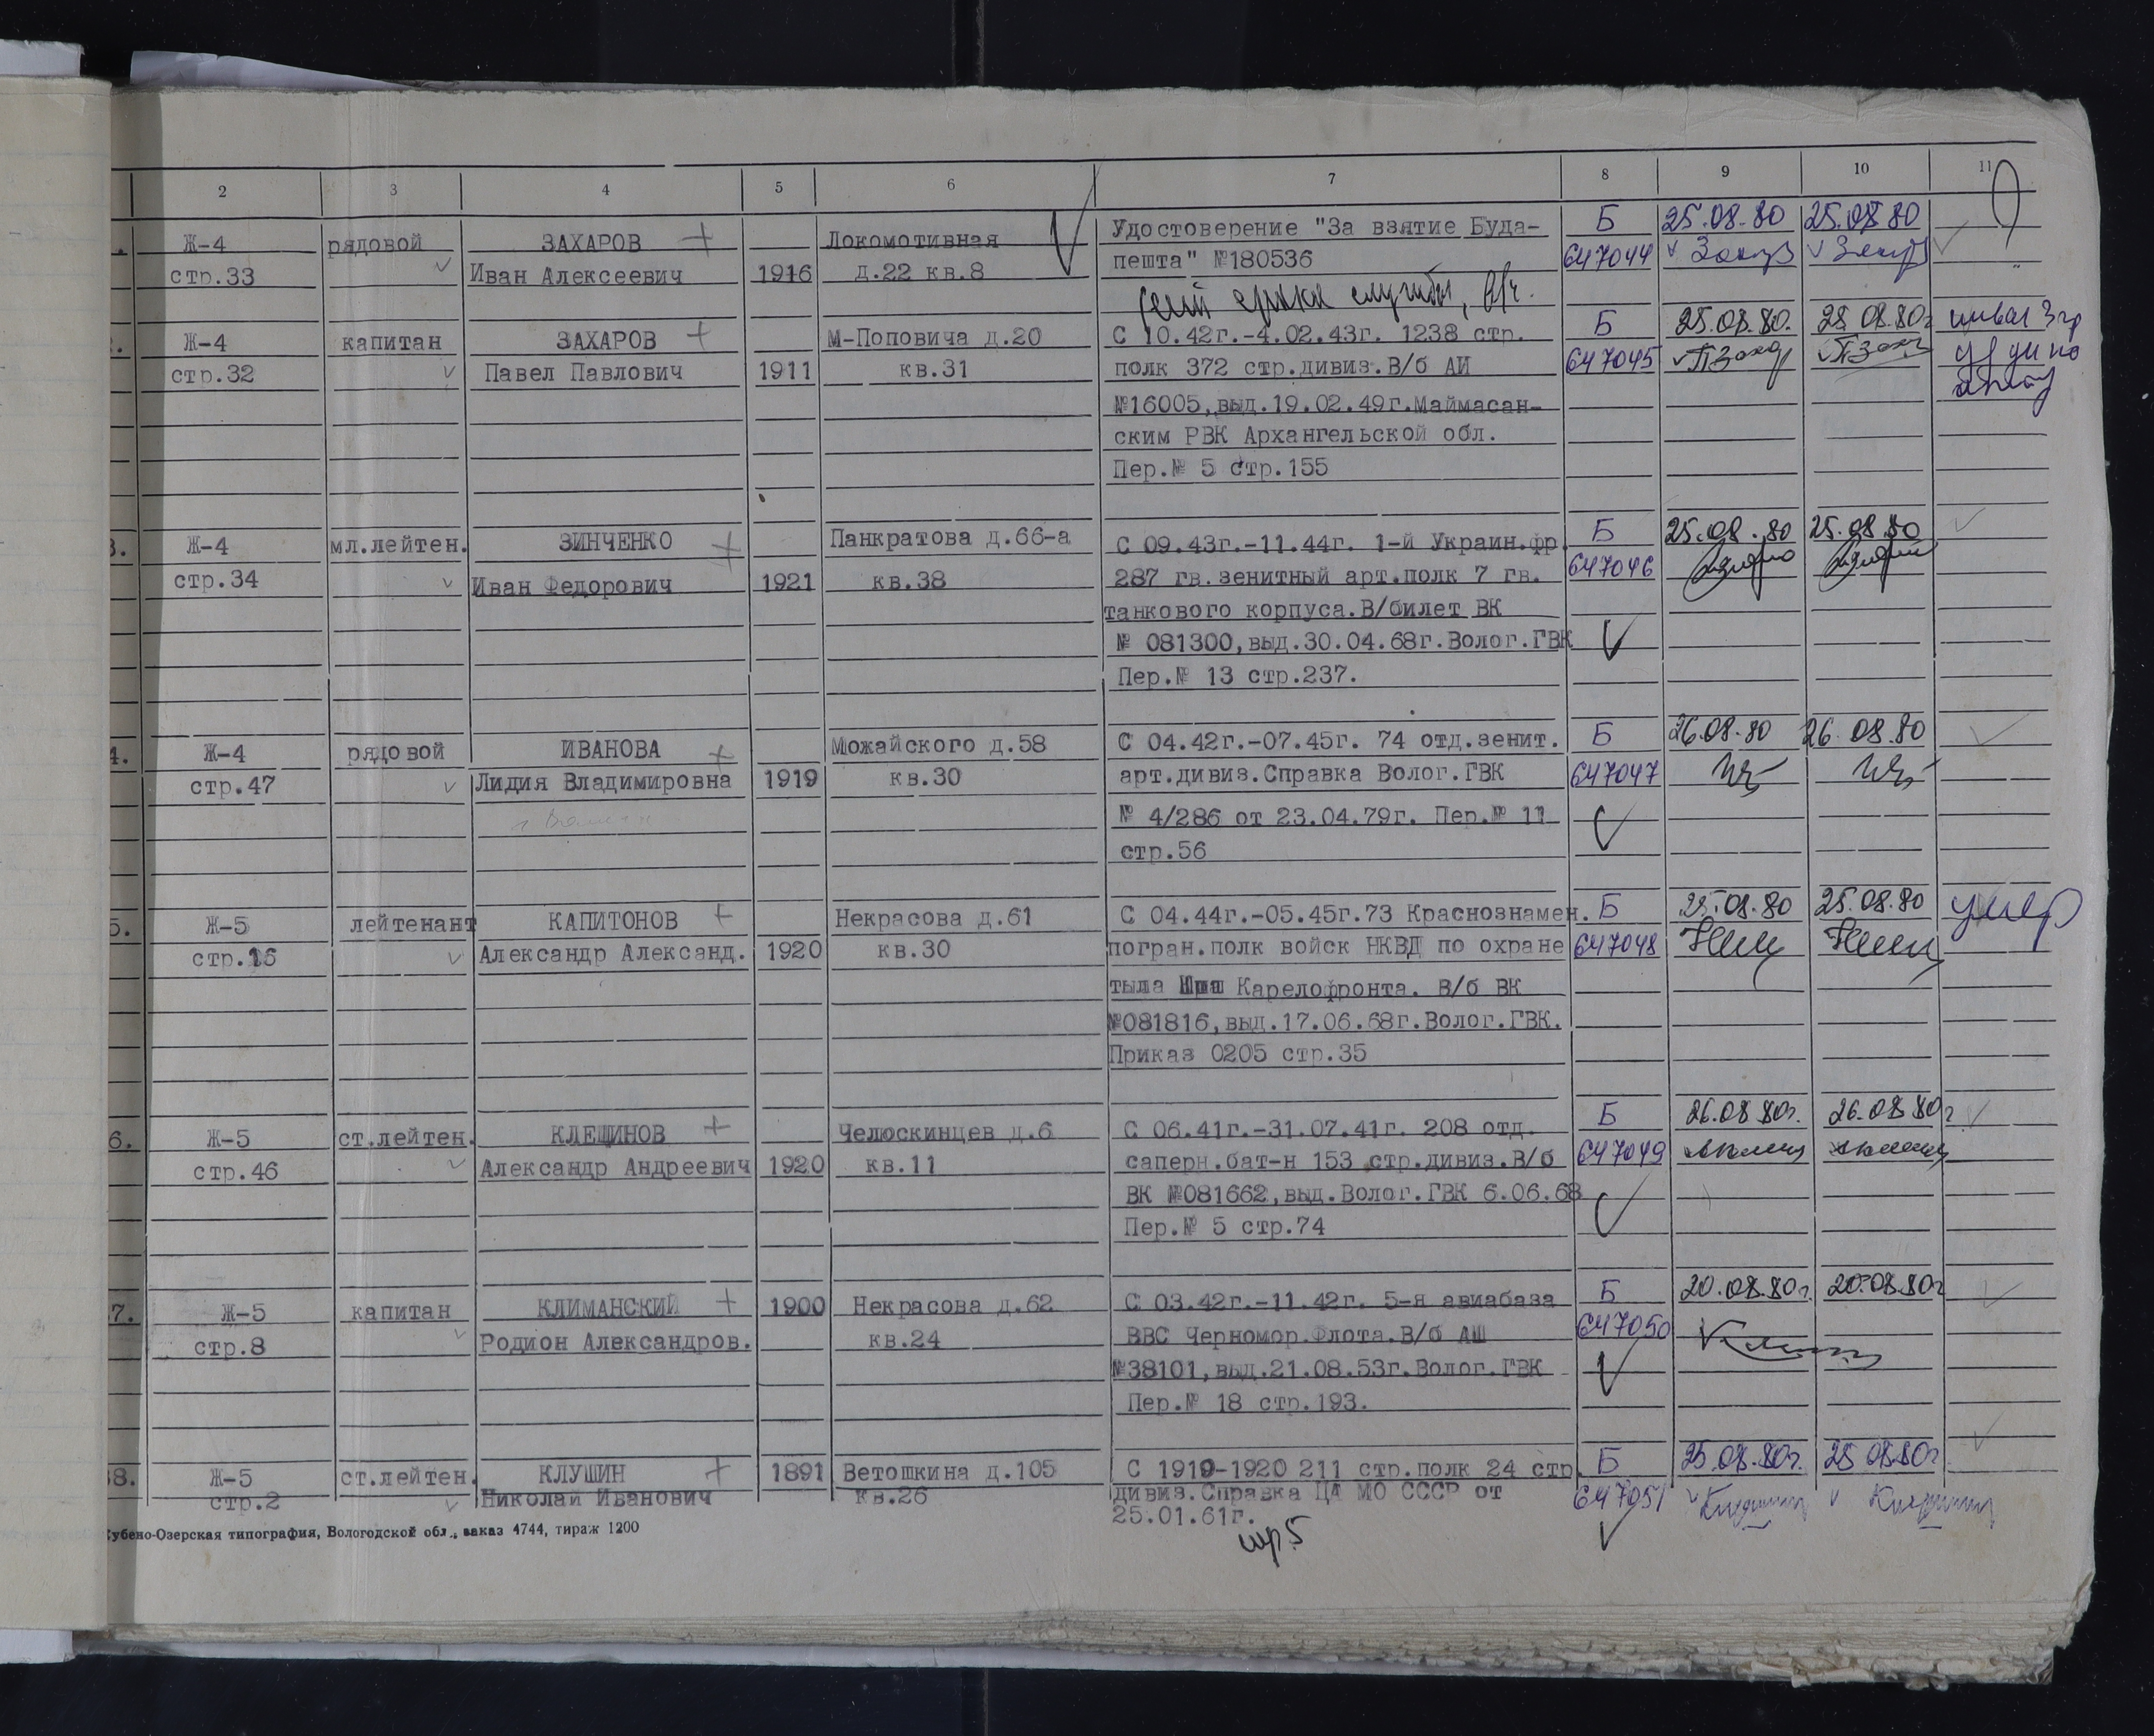 2 3 4 5 6 7 8 9 10 11
Ж-4 рядовой ЗАХАРОВ + Локомотивная Удостоверение "За взятие Буда- Б 25.08.80 25.08.80
стр.33 Иван Алексеевич 1916 д.22 кв.8 пешта" №180536 647044
службы, в/ч.
Ж-4 капитан ЗАХАРОВ + М-Поповича д.20 С 10.42г.-4.02.43г. 1238 стр. Б 25.08.80. 25 08.80г
стр.32 Павел Павлович 1911 кв.31 полк 372 стр.дивиз.В/б АИ 647045
№16005,выд.19.02.49г.Маймасан-
ским РВК Архангельской обл.
Пер.№ 5 стр.155
3. Ж-4 мл.лейтен. ЗИНЧЕНКО + Панкратова д.66-а С 09.43г.-11.44г. 1-й Украин.фр. Б 25.08.80 25.08.80
стр.34 Иван Федорович 1921 кв.38 287 гв.зенитный арт.полк 7 гв. 647046
танкового корпуса.В/билет ВК
№ 081300,выд.30.04.68г.Волог.ГВК
Пер.№ 13 стр.237.
4. Ж-4 рядовой ИВАНОВА + Можайского д.58 С 04.42г.-07.45г. 74 отд.зенит. Б 26.08.80 26.08.80
стр.47 Лидия Владимировна 1919 кв.30 арт.дивиз.Справка Волог.ГВК 647047
№ 4/286 от 23.04.79г. Пер.№ 11
стр.56
5. Ж-5 лейтенант КАПИТОНОВ + Некрасова д.61 С 04.44г.-05.45г.73 Краснознамен. Б 25.08.80 25.08.80 умер
стр.16 Александр Александ. 1920 кв.30 погран.полк войск НКВД по охране 647048
тыла Карелофронта. В/б ВК
№081816,выд.17.06.68г.Волог.ГВК.
Приказ 0205 стр.35
6. Ж-5 ст.лейтен. КЛЕШИНОВ + Челюскинцев д.6 С 06.41г.-31.07.41г. 208 отд. Б 26.08 80г. 26.08 80г
стр.46 Александр Андреевич 1920 кв.11 саперн.бат-н 153 стр.дивиз.В/б 647049
ВК №081662,выд.Волог.ГВК 6.06.68
Пер.№ 5 стр.74
7. Ж-5 капитан КЛИМАНСКИЙ + 1900 Некрасова д.62 С 03.42г.-11.42г. 5-я авиабаза Б 20.08.80г. 20.08.80г
стр.8 Родион Александров. кв.24 ВВС Черномор.Флота.В/б АШ 647050
№38101,выд.21.08.53г.Волог.ГВК
Пер.№ 18 стр.193.
8. Ж-5 ст.лейтен. КЛУШИН + 1891 Ветошкина д.105 С 1919-1920 211 стр.полк 24 стр. Б 25.08.80г. 25 08.80г
стр.2 Николай Иванович кв.26 дивиз.Справка ЦА МО СССР от 647051
25.01.61г.
стр.5
Кубено-Озерская типография, Вологодской обл., заказ 4744, тираж 1200